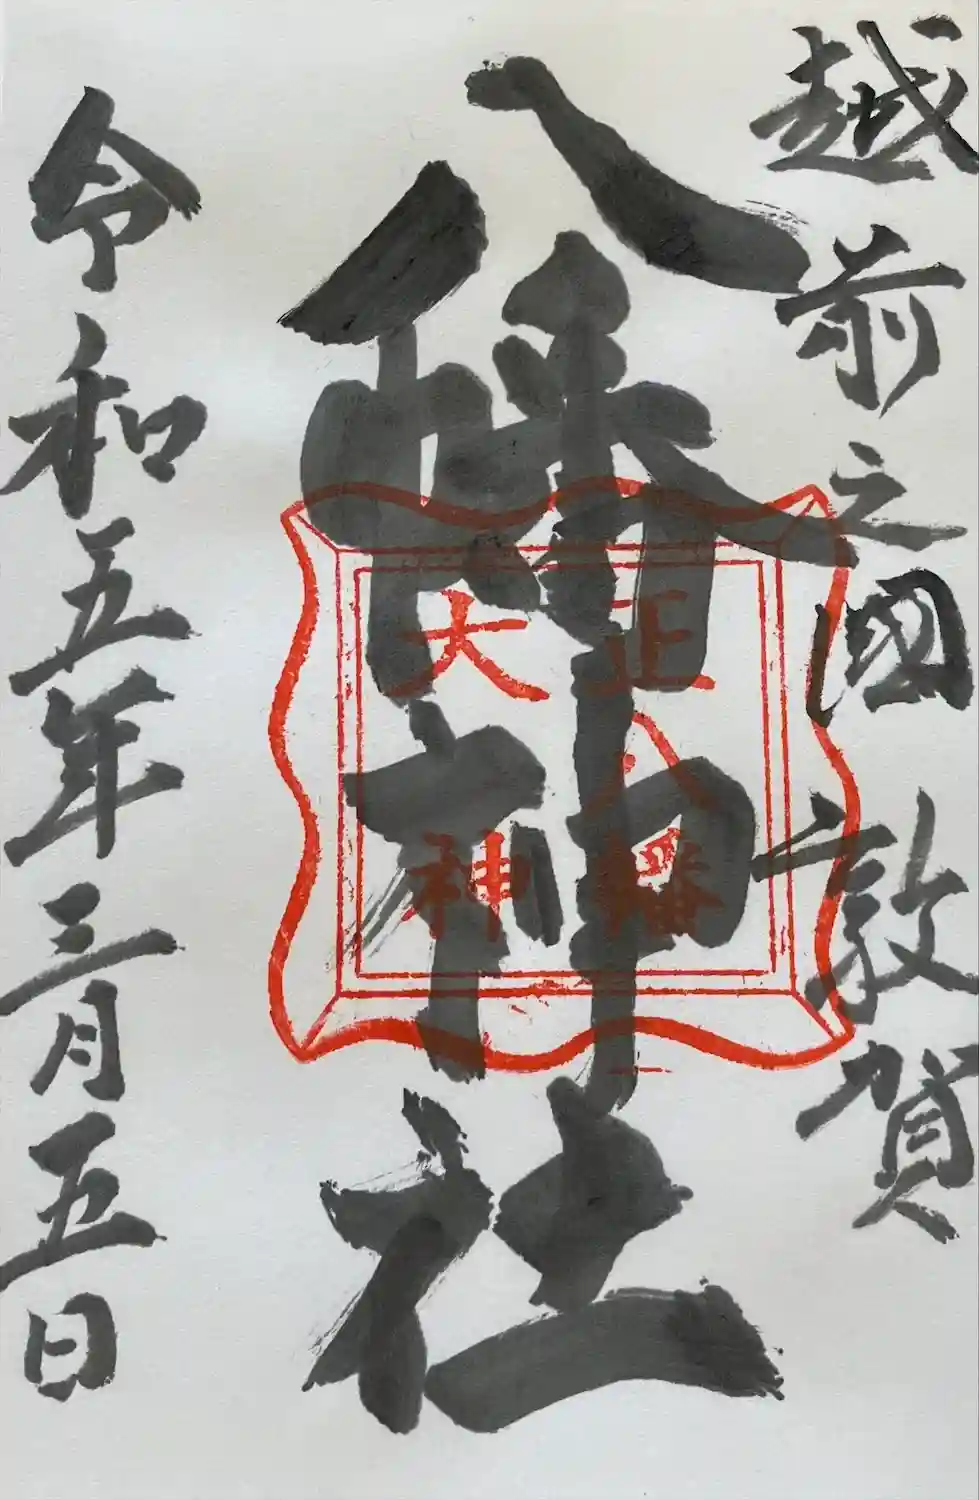 越前之國敦賀
八幡神社
正八幡
大神
令和五年三月五日